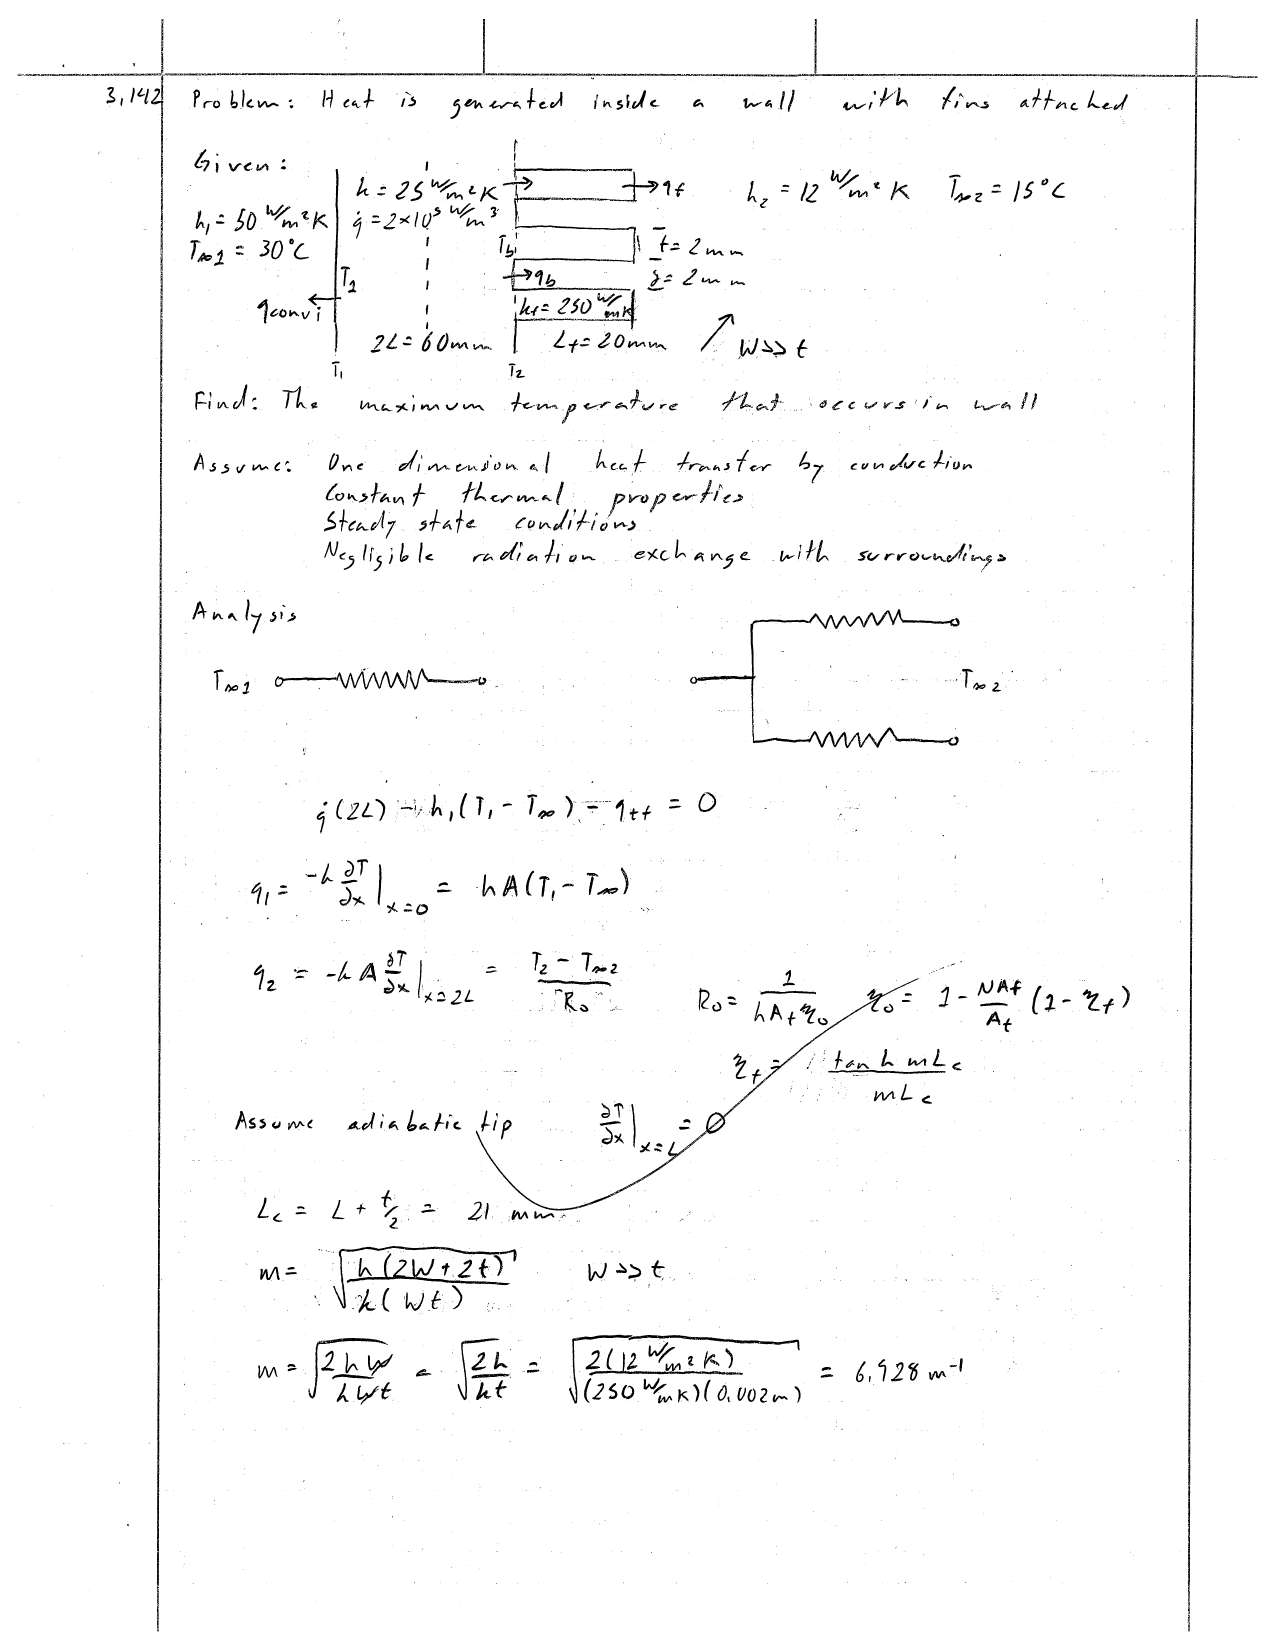 3.142 Problem: Heat is generated inside a wall with fins attached
Given:
h₁ = 50 W/m²K
T∞1 = 30°C
k = 25 W/m²K
q̇ = 2×10⁵ W/m³
qf
h₂ = 12 W/m²K T∞2 = 15°C
Tb
t = 2mm
qb
δ = 2mm
T1
qconvi
kf = 250 W/mK
2L = 60mm
Lf = 20mm
W>>t
T₁
T2
Find: The maximum temperature that occurs in wall
Assume: One dimensional heat transfer by conduction
Constant thermal properties
Steady state conditions
Negligible radiation exchange with surroundings
Analysis
T∞1
T∞2
q̇(2L) - h₁(T₁ - T∞) - qtf = 0
q₁ = -k ∂T/∂x |x=0 = hA(T₁ - T∞)
q₂ = -kA ∂T/∂x |x=2L = (T₂ - T∞2)/Ro
Ro = 1/(hAtηo) ηo = 1 - NAf/At (1 - ηf)
ηf = tanh mLc / mLc
Assume adiabatic tip ∂T/∂x |x=L = 0
Lc = L + t/2 = 21 mm
m = √(h(2W+2t)/k(Wt)) W>>t
m = √(2hW/kWt) = √(2h/kt) = √(2(12 W/m²K)/(250 W/mK)(0.002m)) = 6.928 m⁻¹